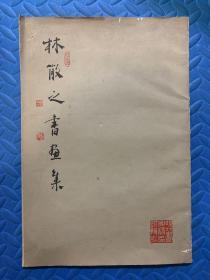 林散之書畫集